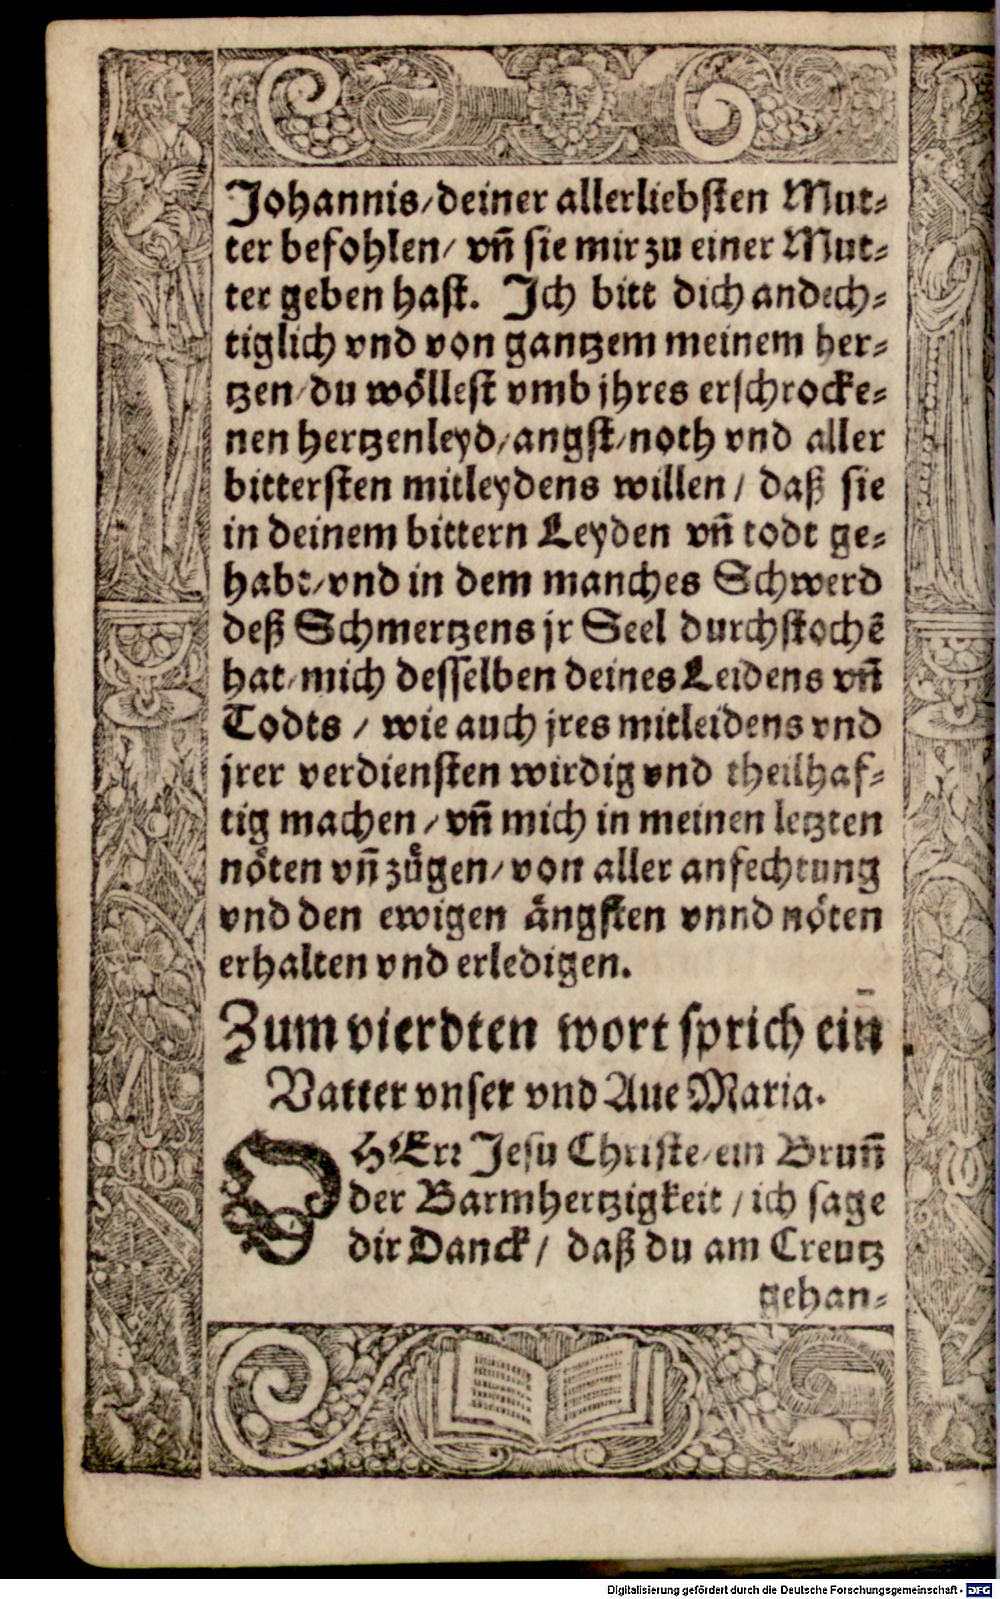 Johannis/deiner allerliebsten Mut⸗
ter befohlen/ vn̄ sie mir zu einer Mut⸗
ter geben hast. Ich bitt dich andech⸗
tiglich vnd von gantzem meinem her⸗
tzen/du wöllest vmb jhres erschrocke⸗
nen hertzenleyd/angst/noth vnd aller
bittersten mitleydens willen/ daß sie
in deinem bittern Leyden vn̄ todt ge⸗
habt/vnd in dem manches Schwerd
deß Schmertzens jr Seel durchstochē
hat/mich desselben deines Leidens vn̄
Todts / wie auch jres mitleidens vnd
jrer verdiensten wirdig vnd theilhaf⸗
tig machen/ vn̄ mich in meinen letzten
nöten vn̄ zügen/von aller anfechtung
vnd den ewigen ängsten vnnd nöten
erhalten vnd erledigen.
Zum vierdten wort sprich ein̄
Vatter vnser vnd Aue Maria.
O HErr Jesu Christe/ein Brun̄
der Barmhertzigkeit/ich sage
dir Danck/ daß du am Creutz
gehan⸗
Digitalisierung gefördert durch die Deutsche Forschungsgemeinschaft - DFG